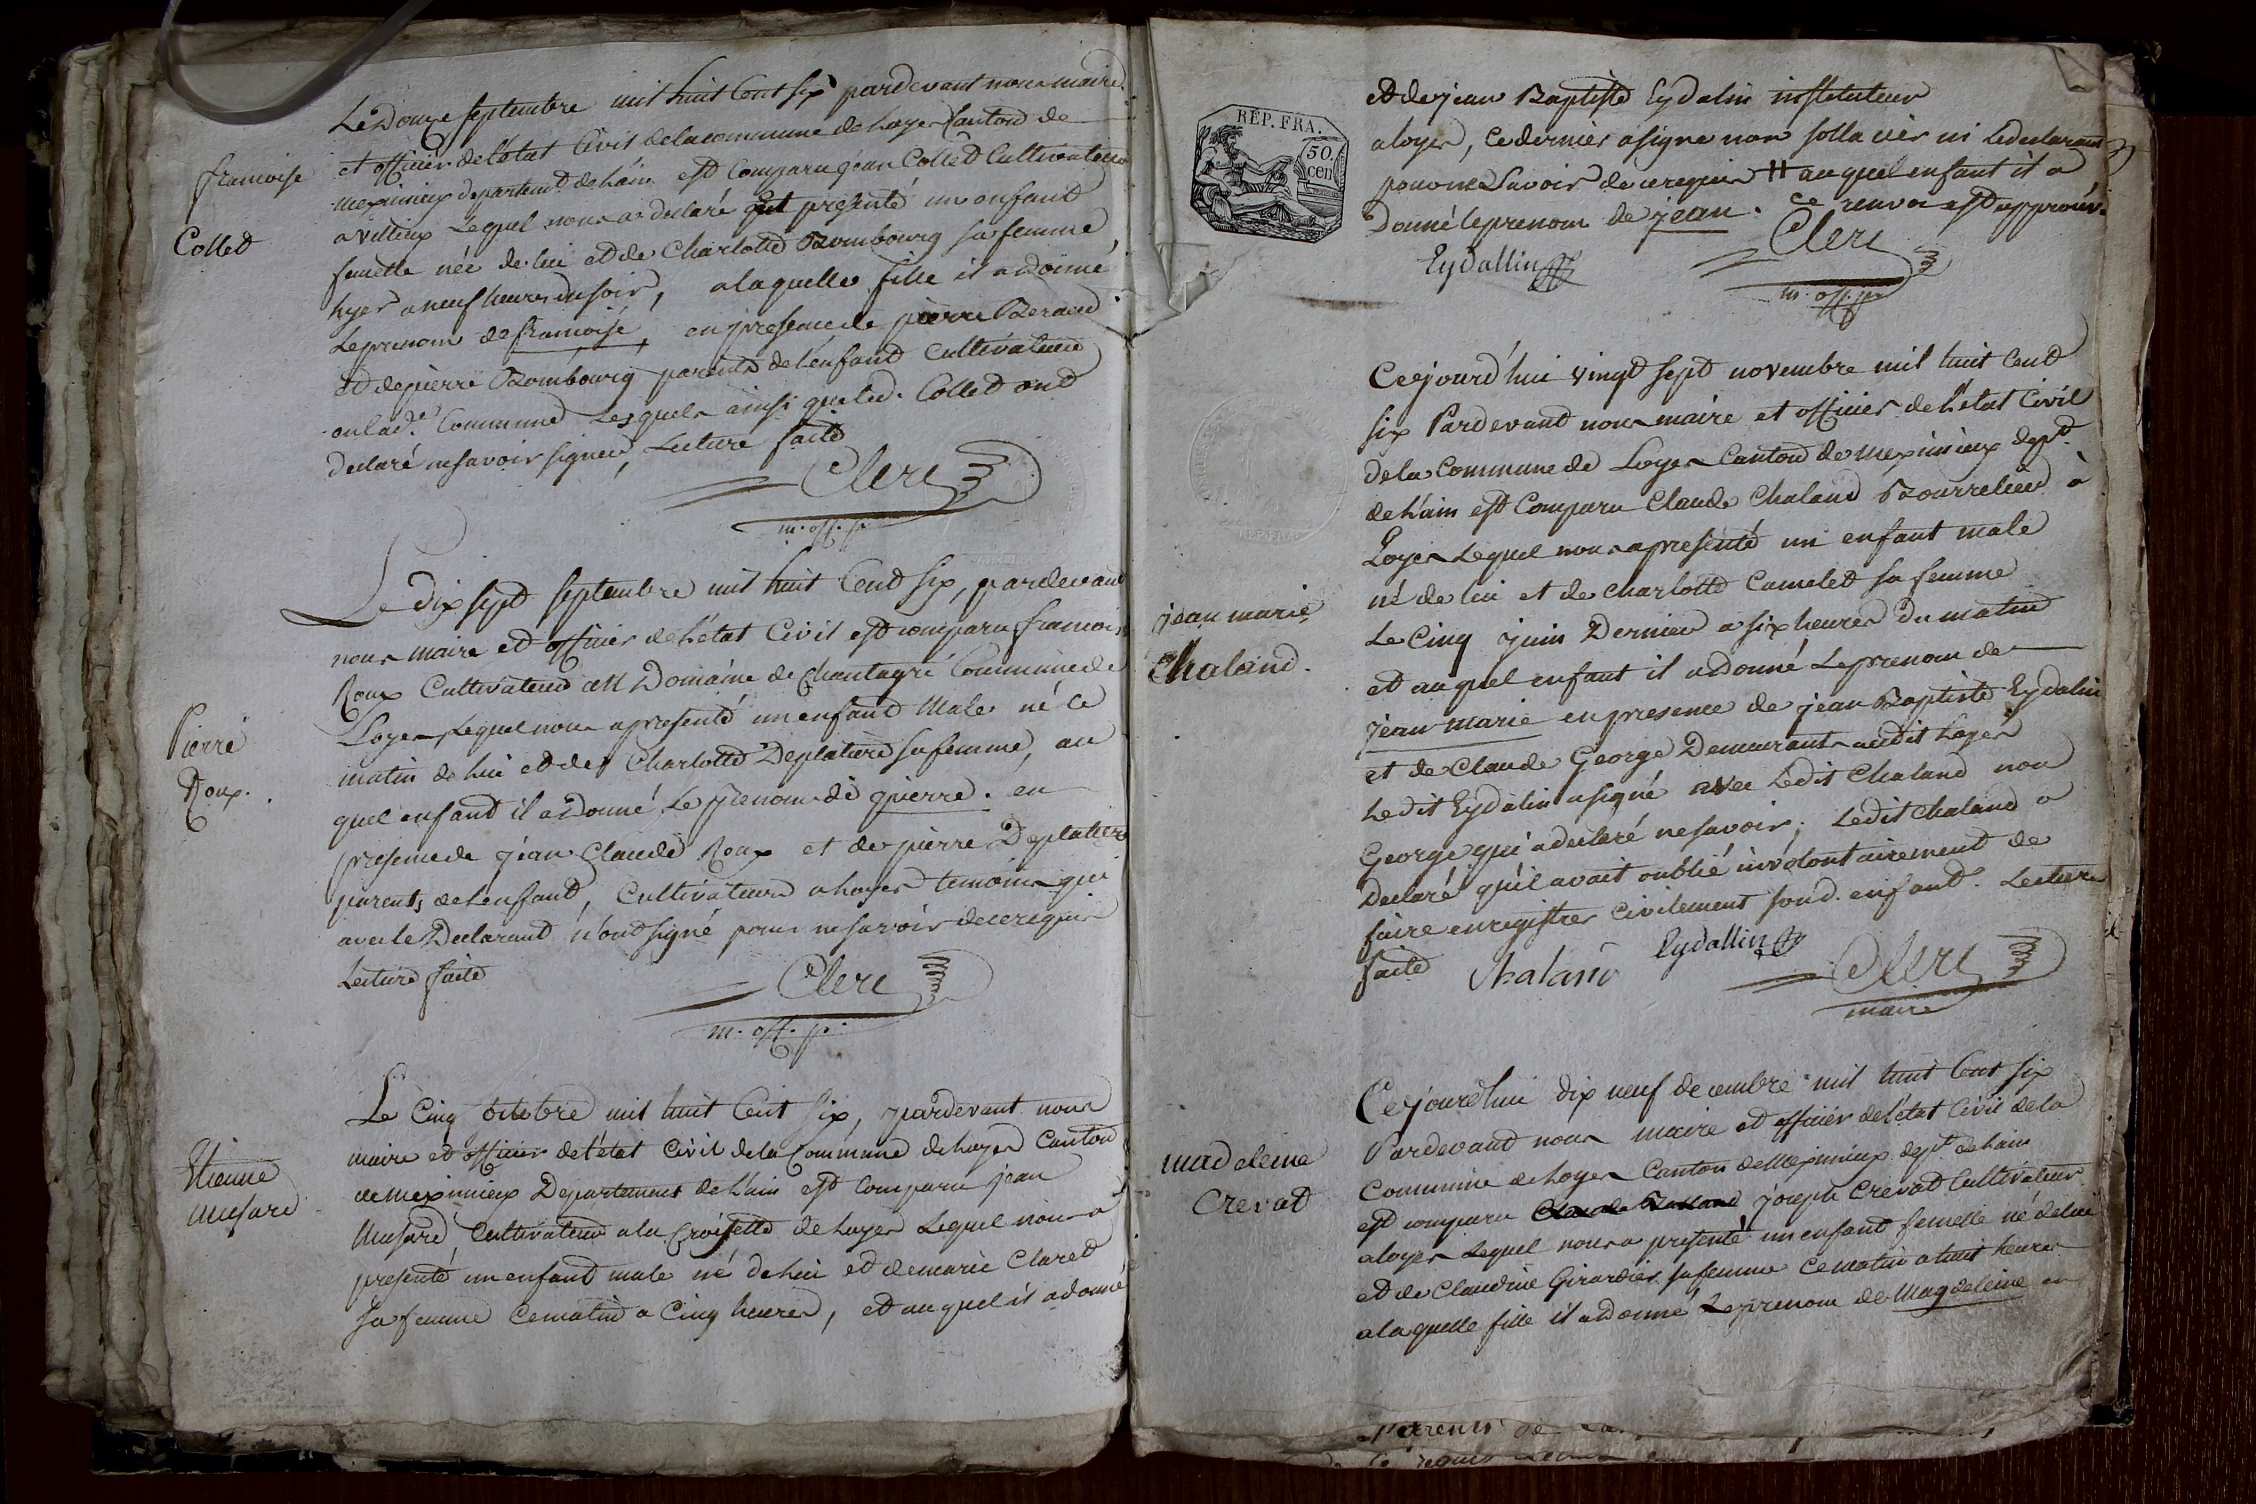 Le Douze septembre mil huit Cent six pardevant nous maire
et officier de létat Civil de la commune de Loyes Canton de
meximieux departement de Lain est Comparu jean Collet Cultivateur
a villieux Lequel nous a declaré et presenté un enfant
femelle née de lui et de Charlotte Bombourg sa femme
hyer a neuf heures du soir, a laquelle fille il a donné
Le prenom de francoise, en presence de pierre Beraud
et de pierre Bombourg parents de lenfant Cultivateurs
en lad.e Commune Lesquels ainsi que led. Collet ont
declaré ne savoir signer, Lecture faite
Clerc
m. off. p.
francoise
Collet
Le Dix sept septembre mil huit Cent six, pardevant
nous maire et officier de l'etat Civil est comparu francois
Roux Cultivateur au Domaine de Chantagri Commune de
Loyes Lequel nous a presenté un enfant Male né ce
matin de lui et de Charlotte Deplature sa femme, au
quel enfant il a donné Le prenom de pierre. en
presence de jean Claude Roux et de pierre Deplature
parents de Lenfant, Cultivateurs a Loyes temoins qui
avec le Declarant n'ont signé pour ne savoir de ce requis
Lecture faite
Clerc
m. off. p.
Pierre
Roux.
Le Cinq octobre mil huit Cent Six, pardevant nous
maire et officier de l'état Civil de la Commune de Loyes Canton
de meximieux Departement de Lain est Comparu jean
Musard Cultivateur a la Croisette de Loyes Lequel nous a
presenté un enfant male né de Lui et de marie Claret
sa femme Ce matin a Cinq heures, et au quel il a donné
Etienne
Musard
REP. FRA.
50.
cen
et de jean Baptiste Eydalin instituteur
a loyes, ce dernier a signe non ni Le declarant
pour ne Savoir de ce requis # au quel enfant il a
Donné le prenom de jean. Ce renvoi est approuvé.
Eydallin Clerc
m. off. p.
Cejourd'hui vingt sept novembre mil huit Cent
six Pardevant nous maire et officier de l'état Civil
de la Commune de Loyes Canton de meximieux dept.
de Lain est Comparu Claude Chaland Bourrelier à
Loyes Lequel nous a presenté un enfant male
né de lui et de Charlotte Camelet sa femme
Le Cinq juin Dernier a six heures du matin
et au quel enfant il a donné Le prenom de
jean marie en presence de jean Baptiste Eydalin
et de Claude George Demeurants audit Loyes
Ledit Eydalin a signé avec Ledit Chaland non
George qui a declaré ne savoir; Ledit Chaland a
Declaré qu'il avait oublié involontairement de
faire enregistrer Civilement sond. enfant. Lecture
faite Chaland Eydallin Clerc
maire
jean marie
Chaland.
Cejourdhui dix neuf decembre mil huit Cent six
Pardevant nous maire et officier de l'état Civil de la
Commune de Loyes Canton de Meximieux dept. de Lain
est comparu joseph Crevat Cultivateur
a loyes Lequel nous a presenté un enfant femelle né de lui
et de Claudine Girardier sa femme Ce matin a huit heures
a la quelle fille il a donné Le prenom de Magdeleine en
madeleine
Crevat
Parents de